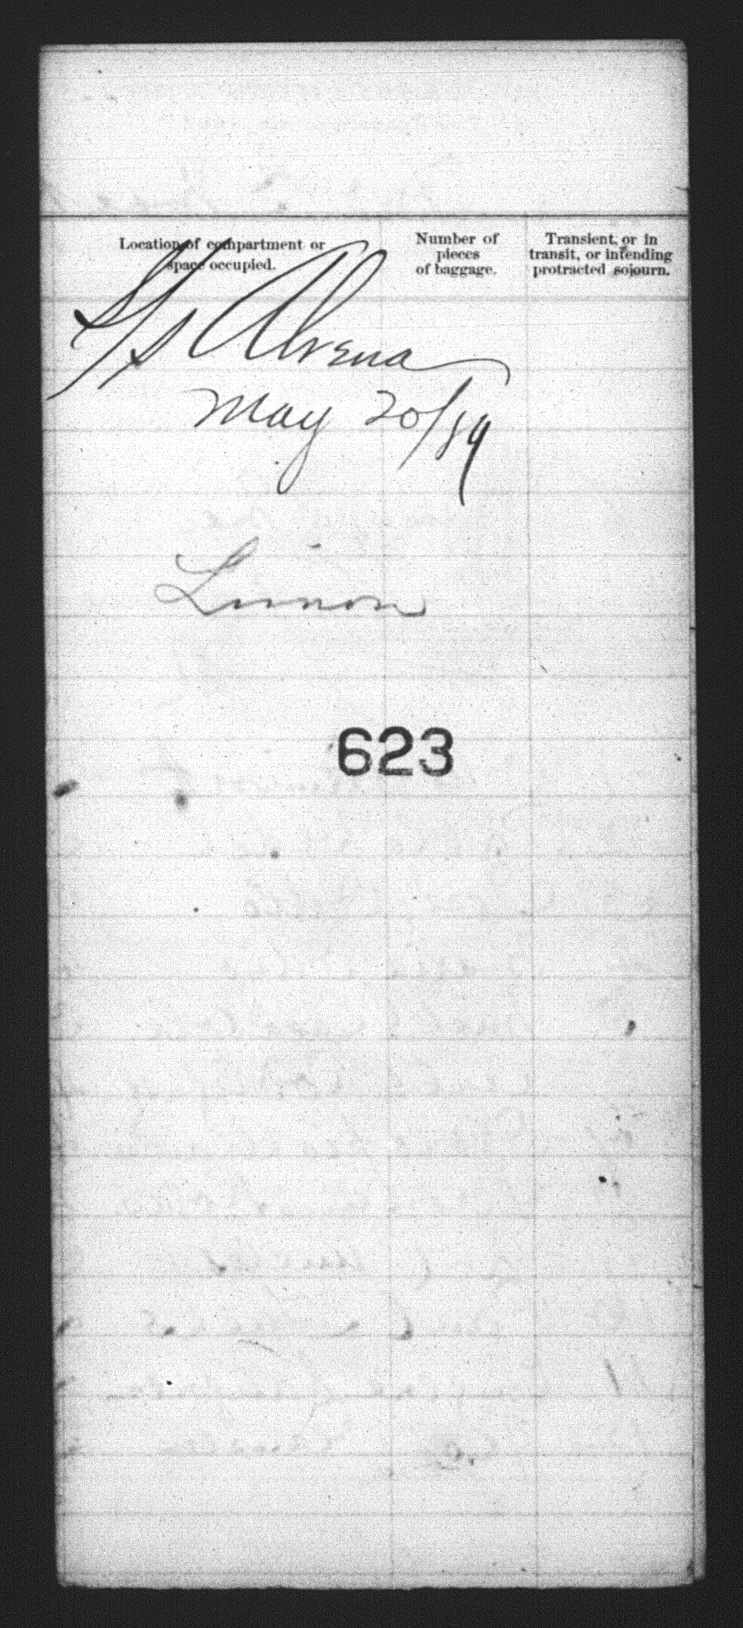 Location of compartment or
space occupied.
Number of
pieces
of baggage.
Transient, or in
transit, or intending
protracted sojourn.
S/S Alvena
May 20/89
Limon
623